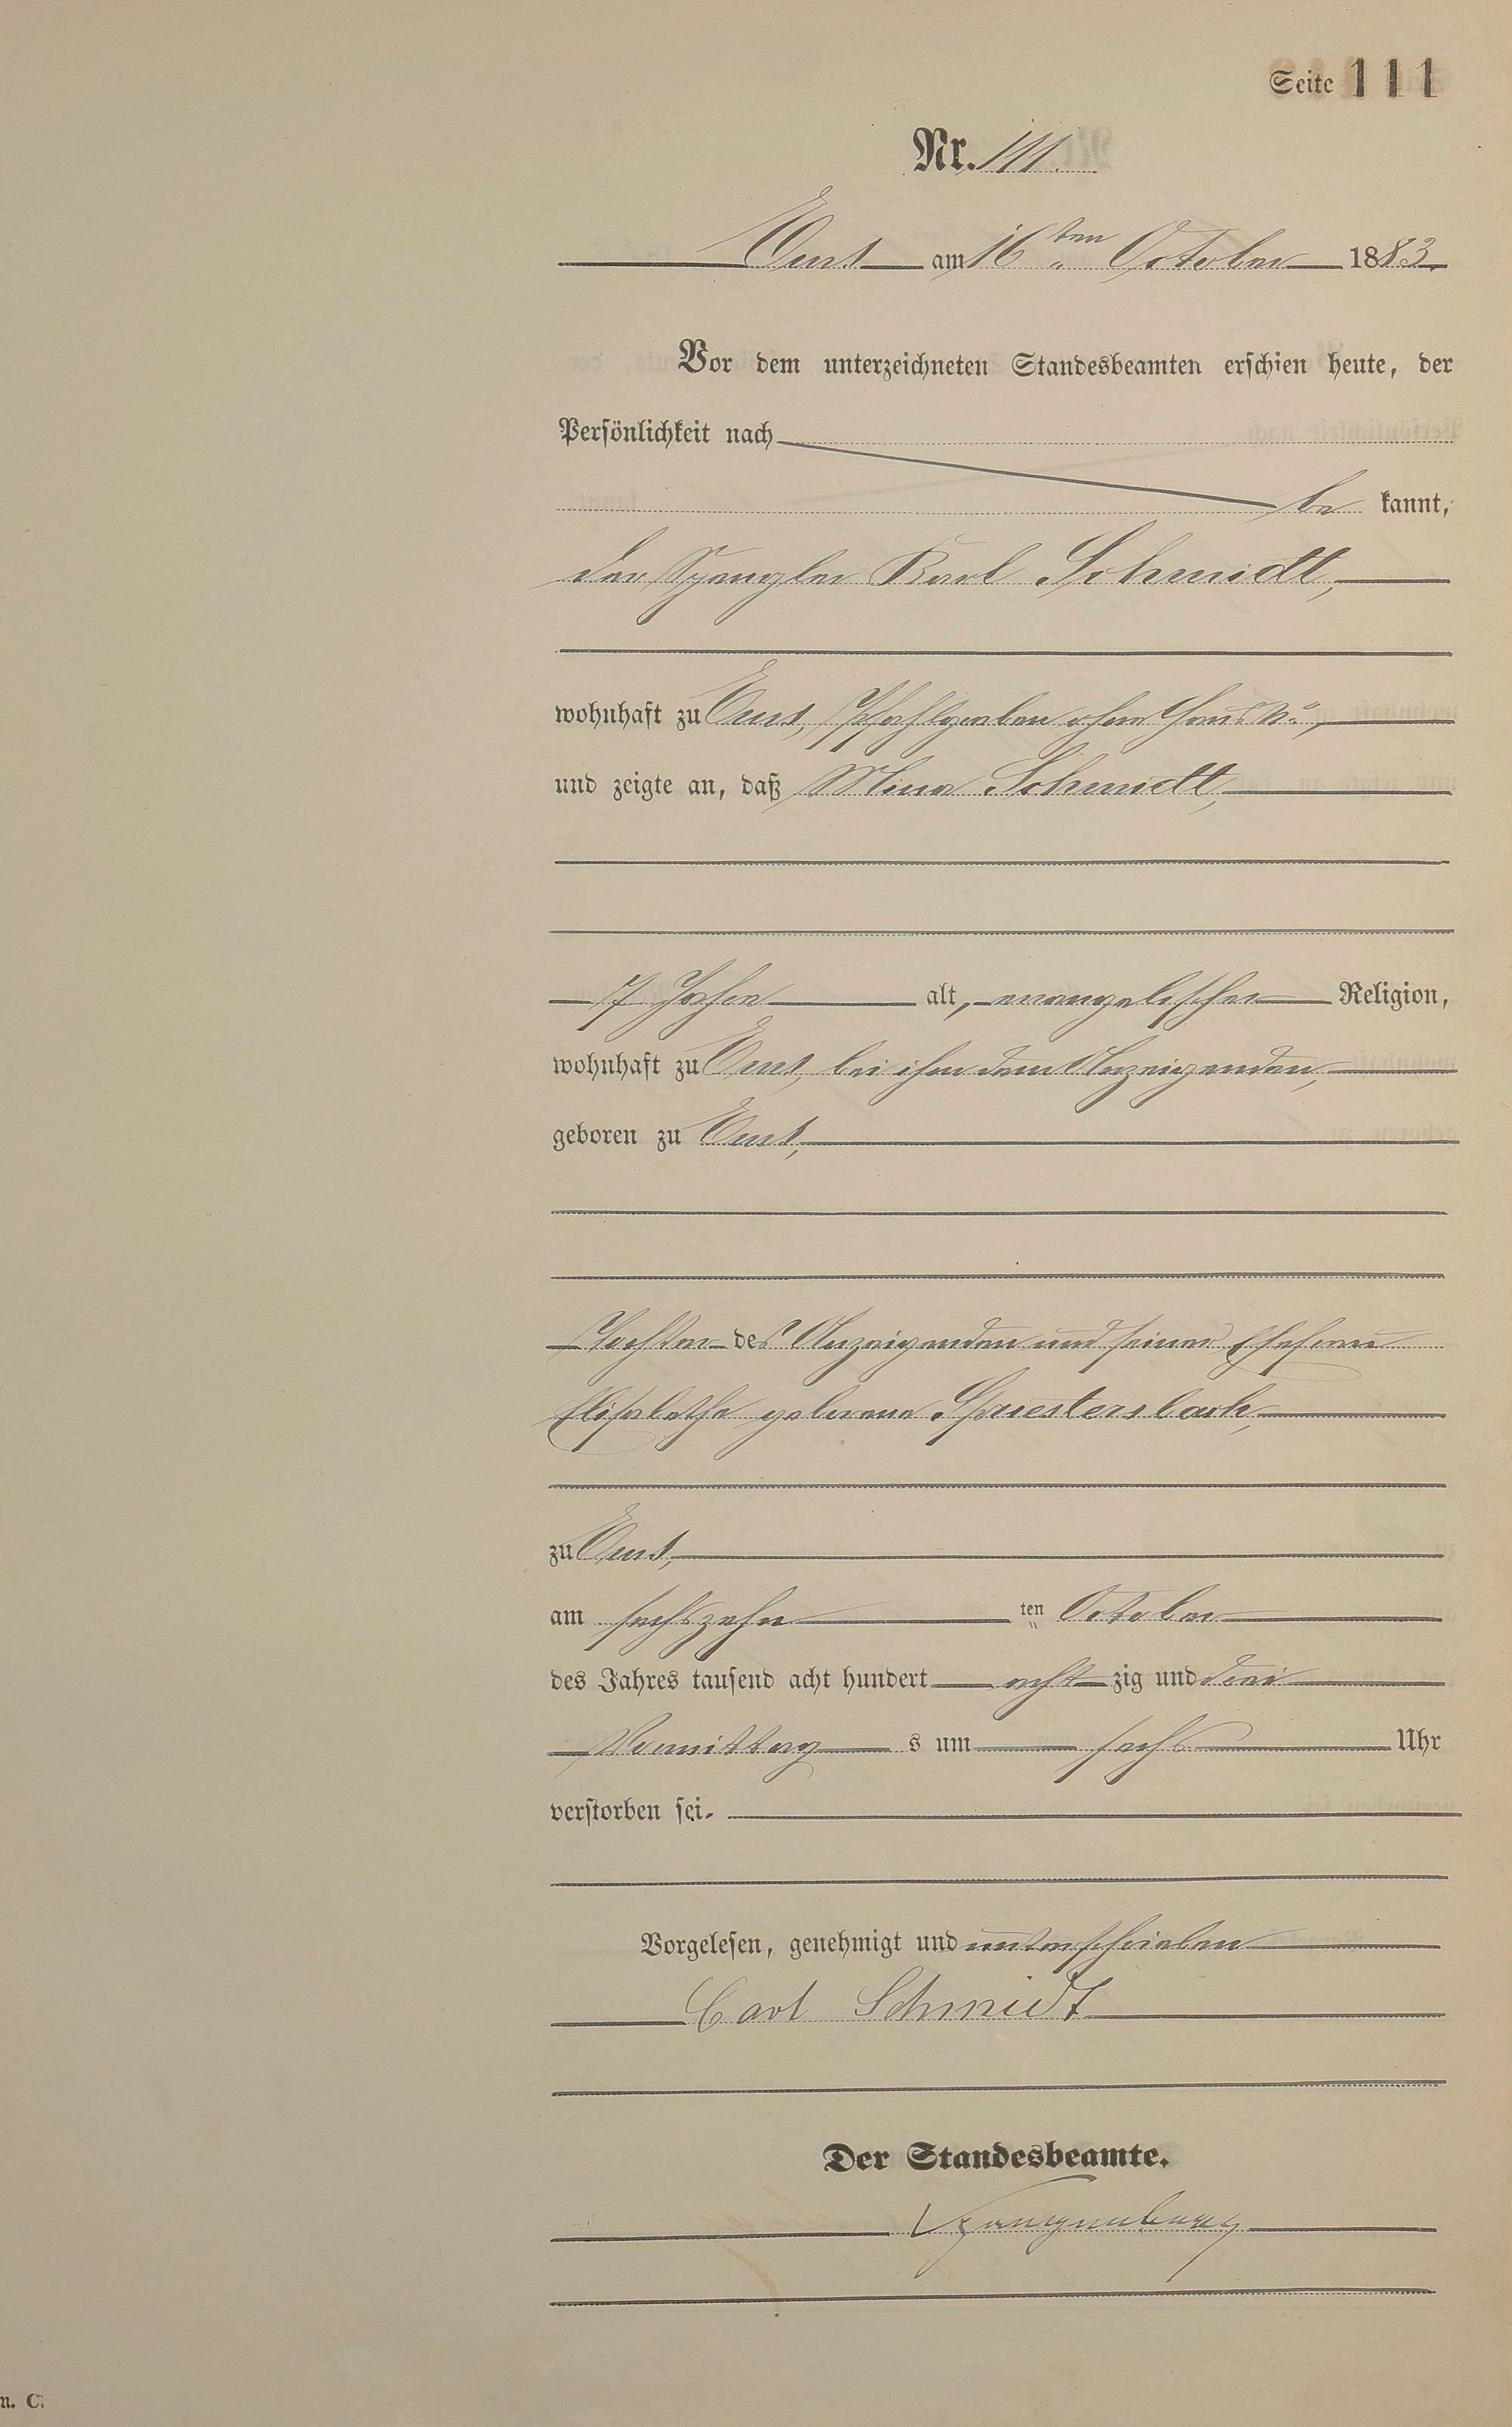 Seite 111
Nr. 111.
Ems am 16ten October 1883.
Vor dem unterzeichneten Standesbeamten erschien heute, der
Persönlichkeit nach
be kannt,
der Spengler Karl Schmidt,
wohnhaft zu Ems, Pfahlgraben ohne Haus No,
und zeigte an, daß Mina Schmidt,
17 Jahre alt, evangelischer Religion,
wohnhaft zu Ems, bei ihm dem Anzeigenden,
geboren zu Ems,
Tochter des Anzeigenden und seiner Ehefrau
Elisabethe geborene Spriestersbach,
zu Ems,
am sechszehn ten October
des Jahres tausend acht hundert acht zig und drei
Vormittag s um sechs Uhr
verstorben sei.
Vorgelesen, genehmigt und unterschrieben
Carl Schmidt
Der Standesbeamte.
n. C.